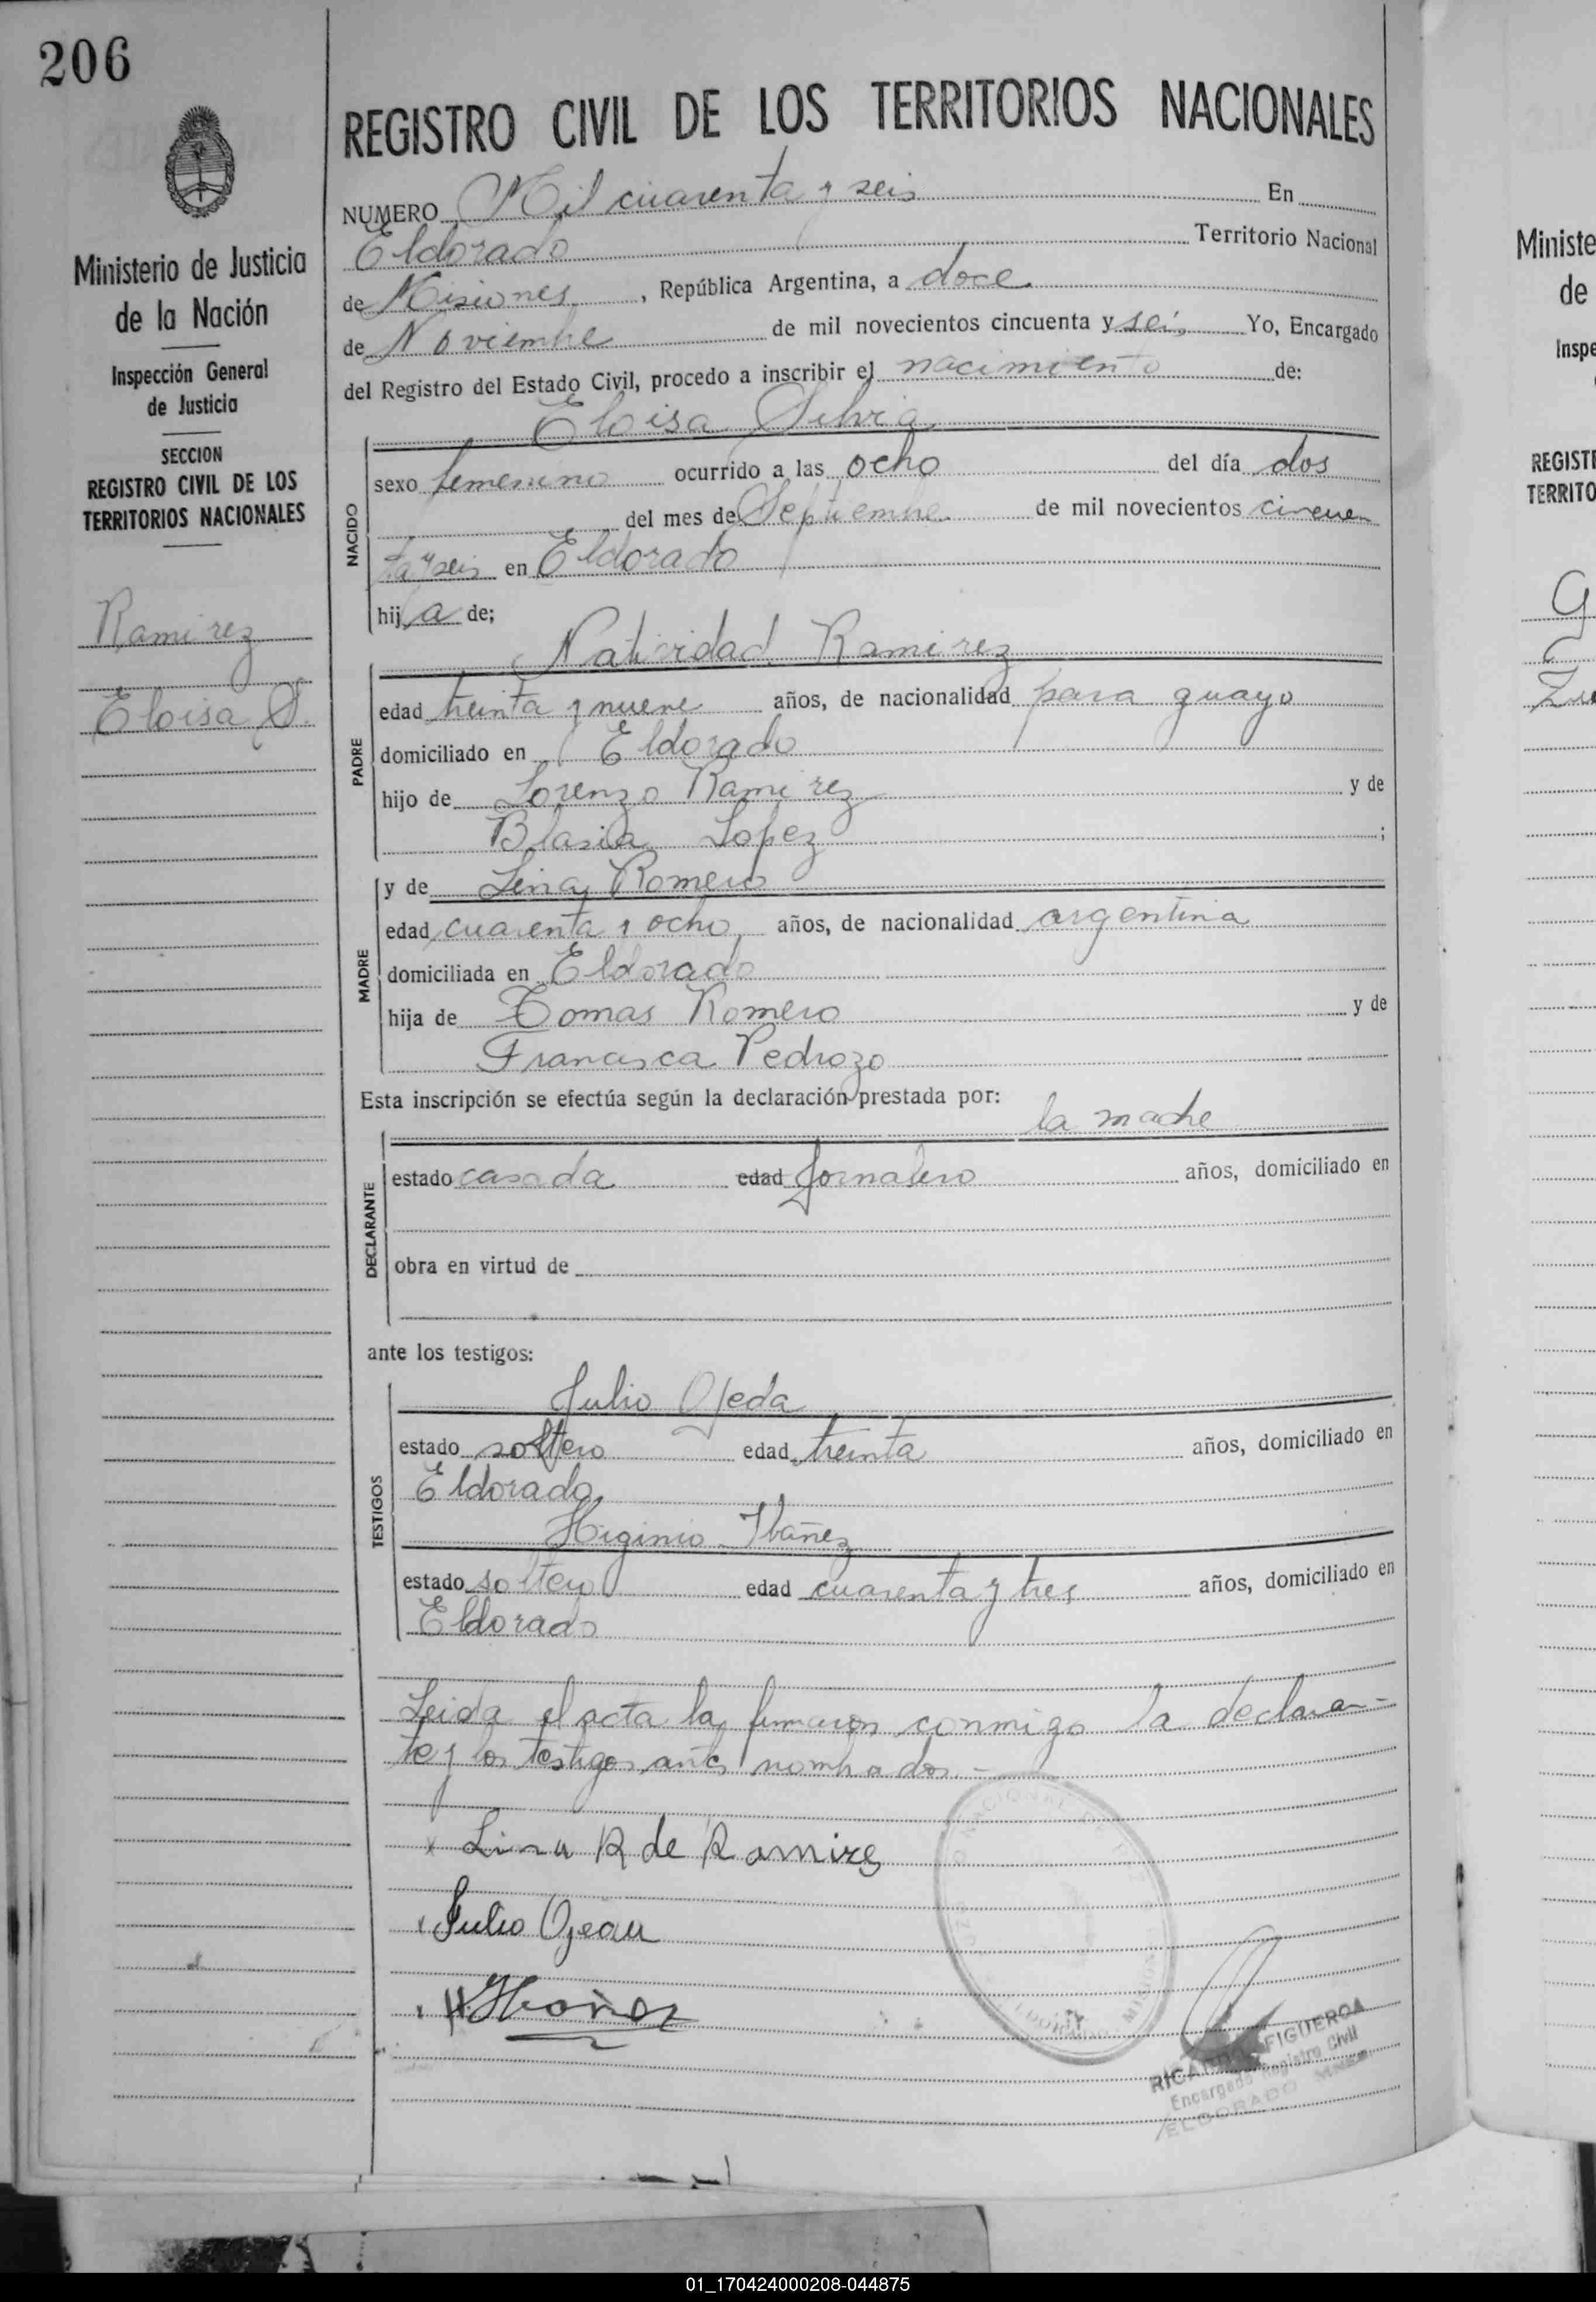 206
Ministerio de Justicia
de la Nación
Inspección General
de Justicia
SECCION
REGISTRO CIVIL DE LOS
TERRITORIOS NACIONALES
Ramirez
Eloisa S.
REGISTRO CIVIL DE LOS TERRITORIOS NACIONALES
NUMERO Mil cuarenta y seis En
Eldorado Territorio Nacional
de Misiones, República Argentina, a doce
de Noviembre de mil novecientos cincuenta y seis Yo, Encargado
del Registro del Estado Civil, procedo a inscribir el nacimiento de:
Eloisa Silvia
NACIDO
sexo femenino ocurrido a las ocho del día dos
del mes de Septiembre de mil novecientos cincuen
ta y seis en Eldorado
hij a de;
Natividad Ramirez
PADRE
edad treinta y nueve años, de nacionalidad paraguayo
domiciliado en Eldorado
hijo de Lorenzo Ramirez y de
Blasia Lopez ;
y de Lina Romero
MADRE
edad cuarenta y ocho años, de nacionalidad argentina
domiciliada en Eldorado
hija de Tomas Romero y de
Francisca Pedrozo
Esta inscripción se efectúa según la declaración prestada por:
la madre
DECLARANTE
estado casada edad Jornalero años, domiciliado en
obra en virtud de
ante los testigos:
Julio Ojeda
TESTIGOS
estado soltero edad treinta años, domiciliado en
Eldorado
Higinio Ibañez
estado soltero edad cuarenta y tres años, domiciliado en
Eldorado
Leida el acta la firmaron conmigo la declaran-
te y los testigos antes nombrados.-
x Lina R de Ramirez
x Julio Ojeda
x H Ibañez
RICARDO FIGUEROA
Encargado Registro Civil
ELDORADO MNES
Ministe
de
Inspe
REGISTE
TERRITO
01_170424000208-044875